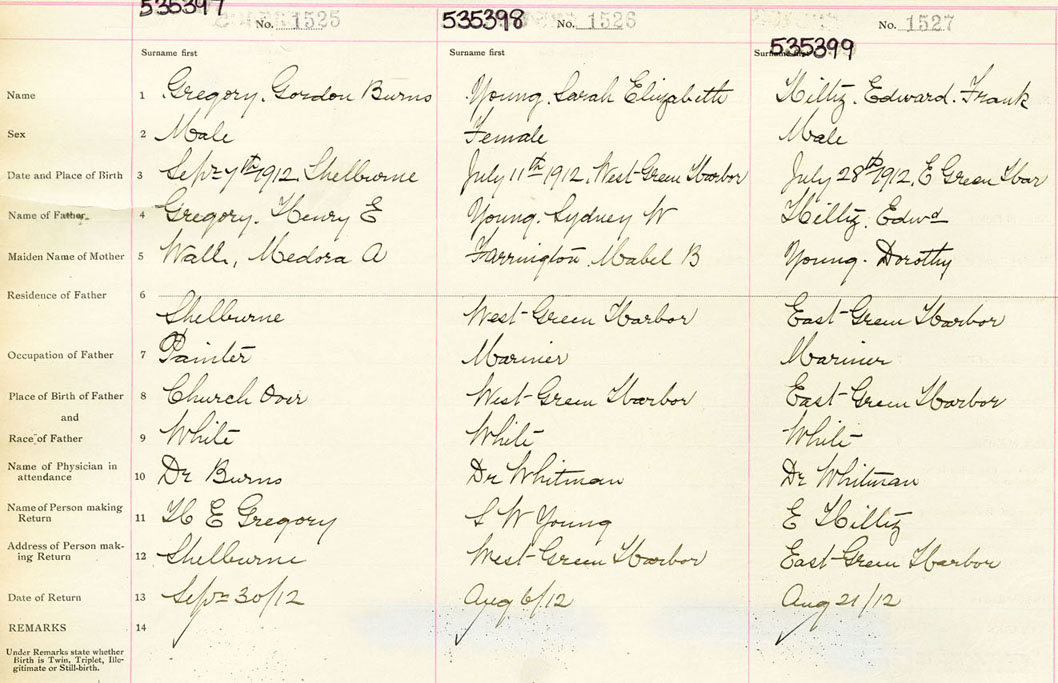 535397 No. 1525 535398 No. 1526 535399 No. 1527
Surname first Surname first Surname first
Name 1 Gregory. Gordon Burns Young. Sarah Elizabeth Hiltz. Edward. Frank
Sex 2 Male Female Male
Date and Place of Birth 3 Sept 7th 1912. Shelburne July 11th 1912. West Green Harbor July 28th 1912. E Green Har
Name of Father 4 Gregory. Henry E Young. Sydney W Hiltz. Edwd
Maiden Name of Mother 5 Wall, Medora A Farrington Mabel B Young. Dorothy
Residence of Father 6
Shelburne West Green Harbor East Green Harbor
Occupation of Father 7 Painter Mariner Mariner
Place of Birth of Father 8 Church Over West Green Harbor East Green Harbor
and
Race of Father 9 White White White
Name of Physician in
attendance 10 Dr Burns Dr Whitman Dr Whitman
Name of Person making
Return 11 H E Gregory S W Young E Hiltz
Address of Person mak-
ing Return 12 Shelburne West Green Harbor East Green Harbor
Date of Return 13 Sept 30/12 Aug 6/12 Aug 21/12
REMARKS 14
Under Remarks state whether
Birth is Twin, Triplet, Ille-
gitimate or Still-birth.